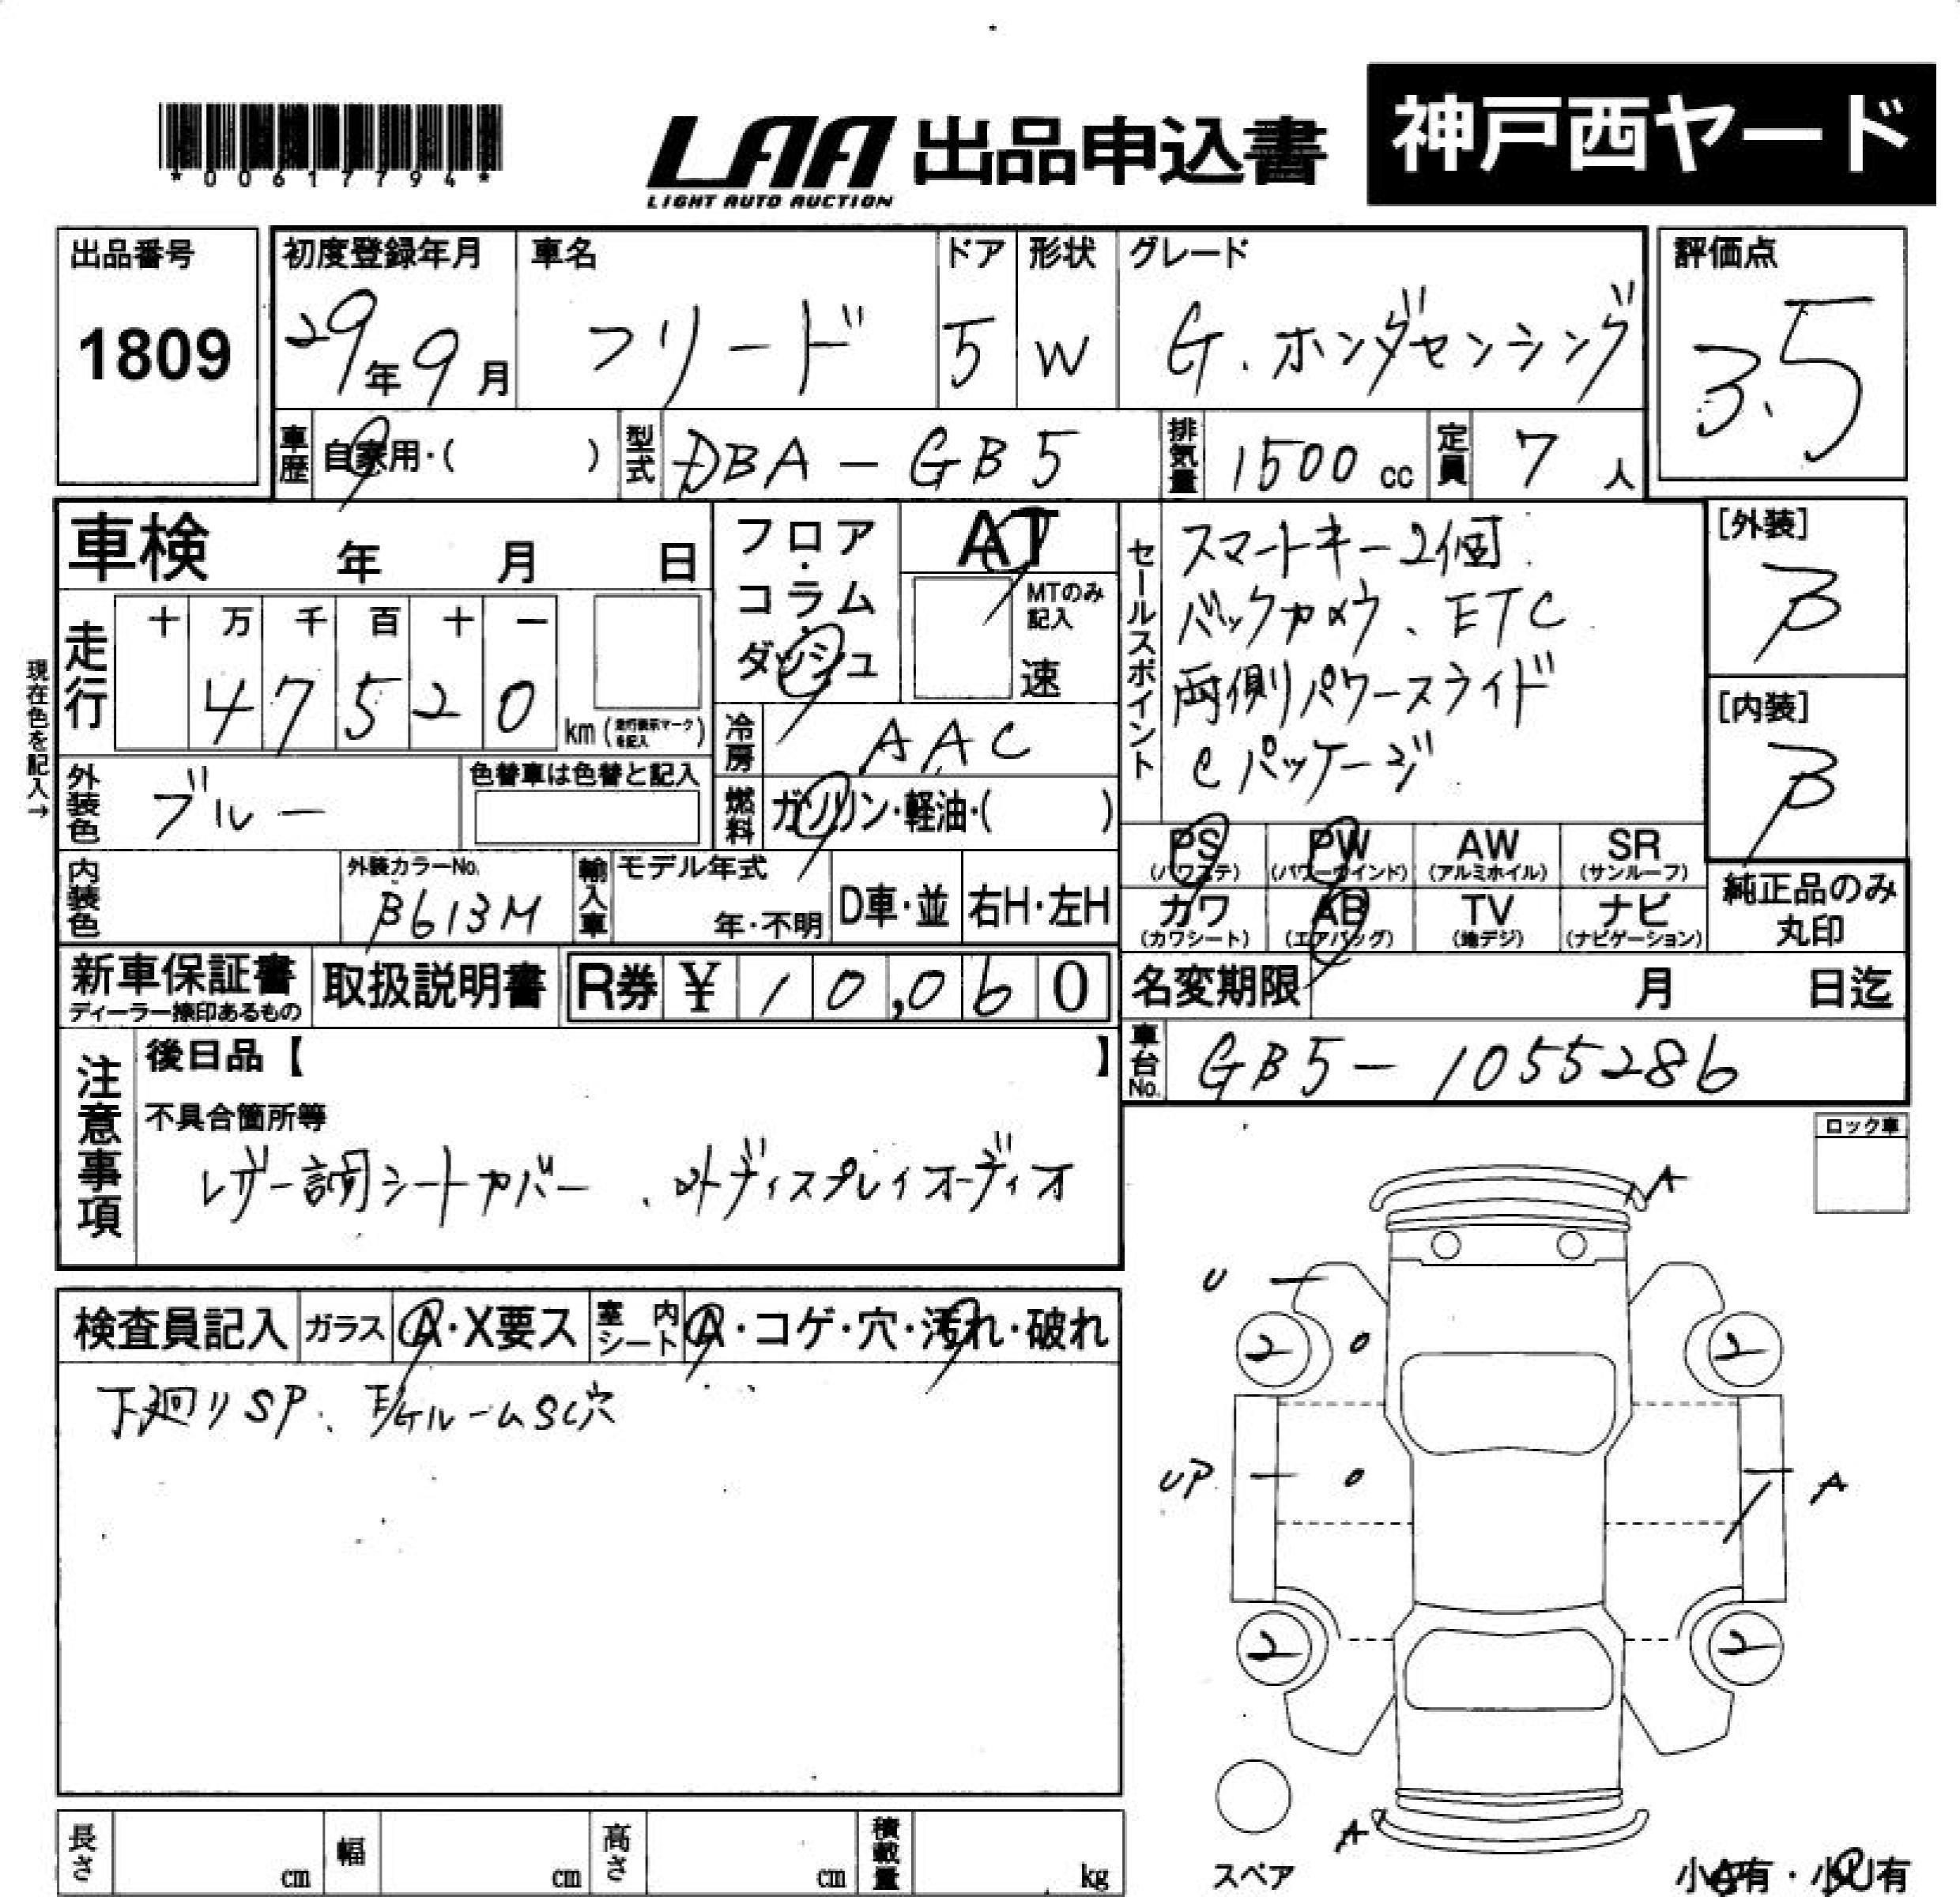 *00617794*
LAA 出品申込書
LIGHT AUTO AUCTION
神戸西ヤード
出品番号
1809
初度登録年月
29年9月
車名
フリード
ドア
5
形状
W
グレード
G.ホンダセンシング
評価点
3.5
車歴
自家用・( )
型式
DBA-GB5
排気量
1500 cc
定員
7人
車検 年 月 日
現在色を記入→
走行
十 万 千 百 十 一
4 7 5 2 0
km (走行表示マークを記入)
フロア・コラム・ダッシュ
AT
MTのみ記入
速
冷房
AAC
燃料
ガソリン・軽油・( )
外装色
ブルー
色替車は色替と記入
内装色
外装カラーNo.
B613M
輸入車
モデル年式
年・不明
D車・並
右H・左H
セールスポイント
スマートキー2個
バックカメラ、ETC
両側パワースライド
Cパッケージ
[外装]
B
[内装]
B
PS (パワステ)
PW (パワーウインド)
AW (アルミホイル)
SR (サンルーフ)
カワ (カワシート)
AB (エアバッグ)
TV (地デジ)
ナビ (ナビゲーション)
純正品のみ丸印
新車保証書
ディーラー捺印あるもの
取扱説明書
R券 ¥ 10,060
名変期限 月 日迄
車台No.
GB5-1055286
注意事項
後日品【 】
不具合箇所等
レザー調シートカバー、外ディスプレイオーディオ
ロック車
検査員記入
ガラス
A・X要ス
室内シート
A・コゲ・穴・汚れ・破れ
下廻りSP、E/GルームSC穴
A
U
2 0 2
UP 0 A
2 2
A
スペア
小A有・小U有
長さ cm
幅 cm
高さ cm
積載量 kg